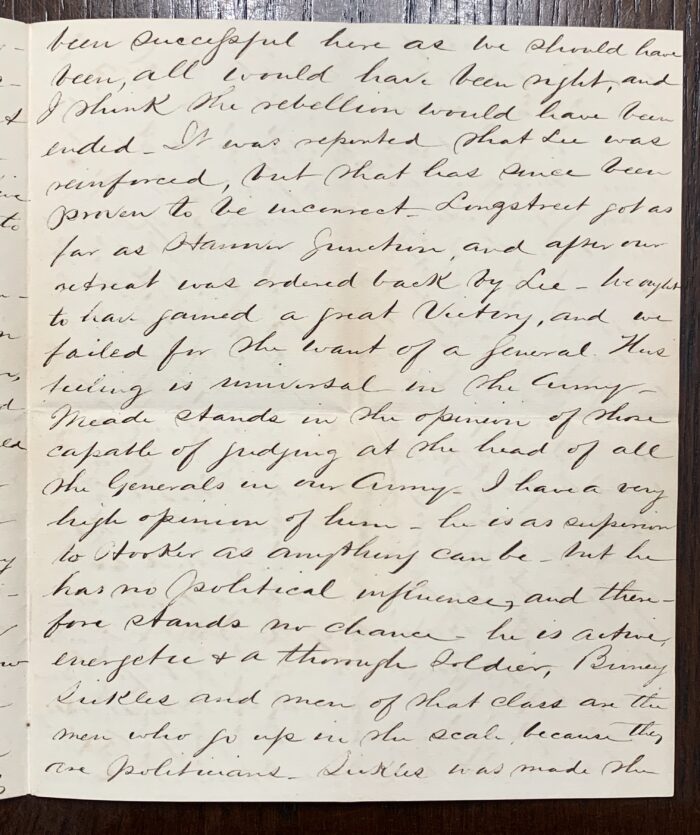 been successful here as we should have
been, all would have been right, and
I think the rebellion would have been
ended - It was reported that Lee was
reinforced, but that has since been
proven to be incorrect - Longstreet got as
far as Hanover Junction, and after our
retreat was ordered back by Lee - we ought
to have gained a great Victory, and we
failed for the want of a General. This
feeling is universal in the Army -
Meade stands in the opinion of those
capable of judging at the head of all
the Generals in our Army - I have a very
high opinion of him - he is as superior
to Hooker as anything can be - but he
has no political influence, and there-
fore stands no chance - he is active,
energetic & a thorough Soldier, Birney
Sickles and men of that class are the
men who go up in the scale because they
are politicians - Sickles was made the